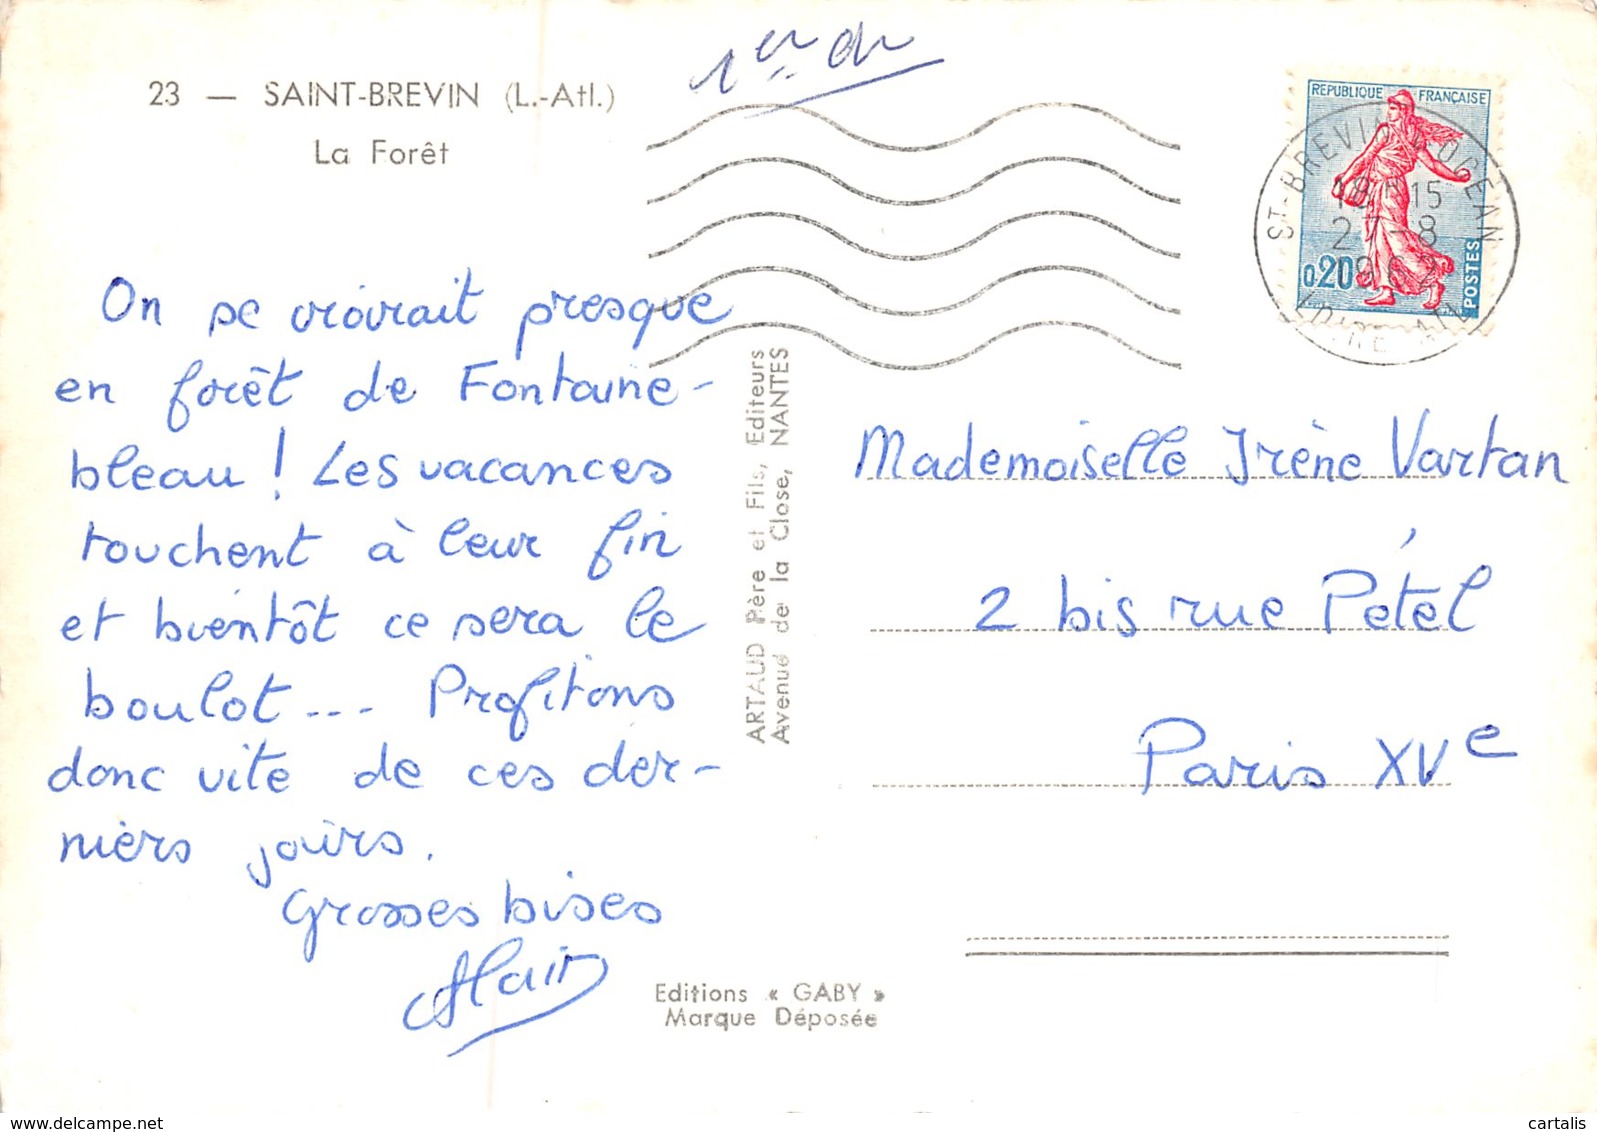 1er dr
23 — SAINT-BREVIN (L.-Atl.)
La Forêt
REPUBLIQUE FRANÇAISE
0,20
POSTES
ST-BREVIN L'OCEAN
18H15
27-8
1962
LOIRE-ATL
On se croirait presque
en forêt de Fontaine-
bleau ! Les vacances
touchent à leur fin
et bientôt ce sera le
boulot... Profitons
donc vite de ces der-
niers jours.
Grosses bises
Alain
ARTAUD Père et Fils, Editeurs
Avenue de la Close, NANTES
Mademoiselle Irène Vartan
2 bis rue Pétel
Paris XVe
Editions « GABY »
Marque Déposée
cartalis